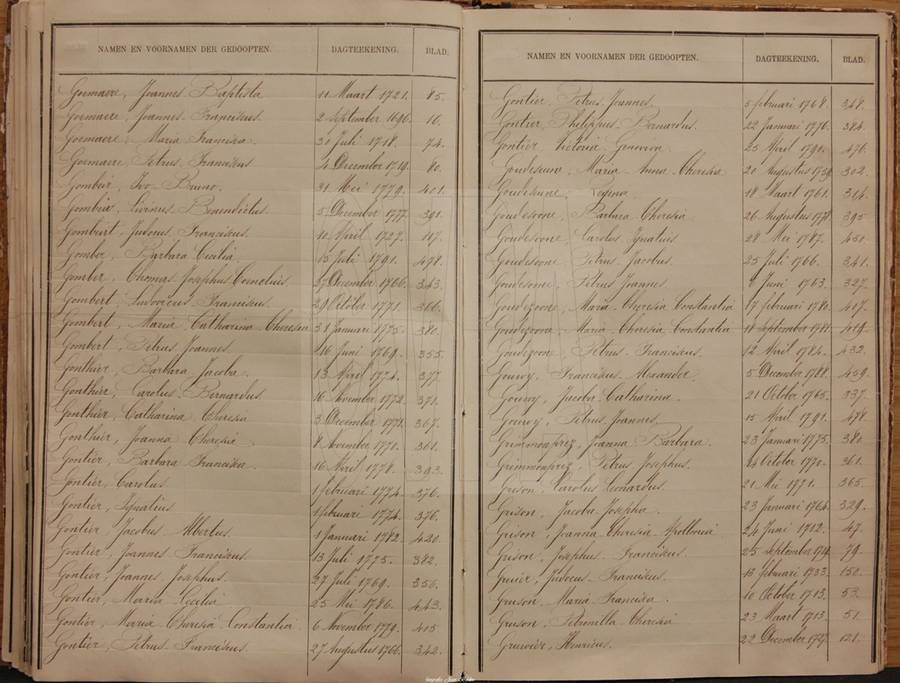 NAMEN EN VOORNAMEN DER GEDOOPTEN. DAGTEEKENING. BLAD.
Goemaere, Joannes Baptista 11 Maart 1721. 85.
Goemaere, Joannes Franciscus 2 September 1696. 16.
Goemaere, Maria Francisca 30 Juli 1718. 74.
Goemaere, Petrus Franciscus 4 December 1719. 80.
Gombeir, Ivo Bruno. 31 Mei 1779. 401.
Gombeir, Livinus Benedictus 5 December 1777. 391.
Gombert, Judocus Franciscus 10 April 1727. 107.
Gomber, Barbara Cecilia. 15 Juli 1791. 478.
Gomber, Thomas Josephus Cornelius 27 December 1766. 343.
Gombert, Ludovicus Franciscus. 29 October 1771. 366.
Gombert, Maria Catharina Theresia 31 Januari 1775. 380.
Gombert, Petrus Joannes. 16 Juni 1769. 355.
Gonthier, Barbara Jacoba. 13 April 1774. 377.
Gonthier, Carolus Bernardus. 16 November 1772. 371.
Gonthier, Catharina Theresia 3 December 1771. 367.
Gonthier, Joanna Theresia 8 November 1770. 361.
Gontier, Barbara Francisca. 16 April 1778. 393.
Gontier, Carolus 1 februari 1774. 376.
Gontier, Ignatius 1 februari 1774. 376.
Gontier, Jacobus Albertus 1 Januari 1782. 420.
Gontier, Joannes Franciscus 13 Juli 1775. 382.
Gontier, Joannes Josephus. 27 Juli 1769. 356.
Gontier, Maria Cecilia 25 Mei 1786. 443.
Gontier, Maria Theresia Constantia 6 November 1779. 405.
Gontier, Petrus Franciscus. 27 Augustus 1766. 342.
NAMEN EN VOORNAMEN DER GEDOOPTEN. DAGTEEKENING. BLAD.
Gontier, Petrus Joannes 5 februari 1768. 348.
Gontier, Philippus Bernardus. 22 Januari 1776. 384.
Gontier, Victoria 25 April 1791. 476.
Goudeseune, Maria Anna Theresia 20 Augustus 302.
Goudeseune, Regina 18 Maart 1761. 314.
Goudesoone, Barbara Theresia 26 Augustus 1778 395.
Goudesoone, Carolus Ignatius 28 Mei 1787. 450.
Goudesoone, Petrus Jacobus 25 Juli 1766. 341.
Goudesoone, Petrus Joannes 8 Juni 1763. 327.
Goudezoone, Maria Theresia Constantia 17 februari 1780. 407.
Goudezoone, Maria Theresia Constantia 18 September 1781. 419.
Goudezoone, Petrus Franciscus. 12 April 1784. 432.
Gouwy, Franciscus Alexander. 5 December 1788. 459.
Gouwy, Jacoba Catharina. 21 October 1765. 337.
Gouwy, Petrus Joannes. 15 April 1791. 478.
Grimmonprez, Joanna Barbara. 23 Januari 1775. 380.
Grimmonprez, Petrus Josephus. 14 October 1770. 361.
Grison, Carolus Leonardus. 21 Mei 1771. 365.
Grison, Jacoba Josepha. 23 Januari 1764. 329.
Grison, Joanna Theresia Apollonia 24 Juni 1712. 47.
Grison, Josephus Franciscus 25 September 1719. 79.
Judocus Franciscus. 13 februari 1733. 150.
Maria Francisca. 10 October 1713. 53.
Petronella Theresia 23 Maart 1713. 51.
Henricus. 22 December 1729. 121.